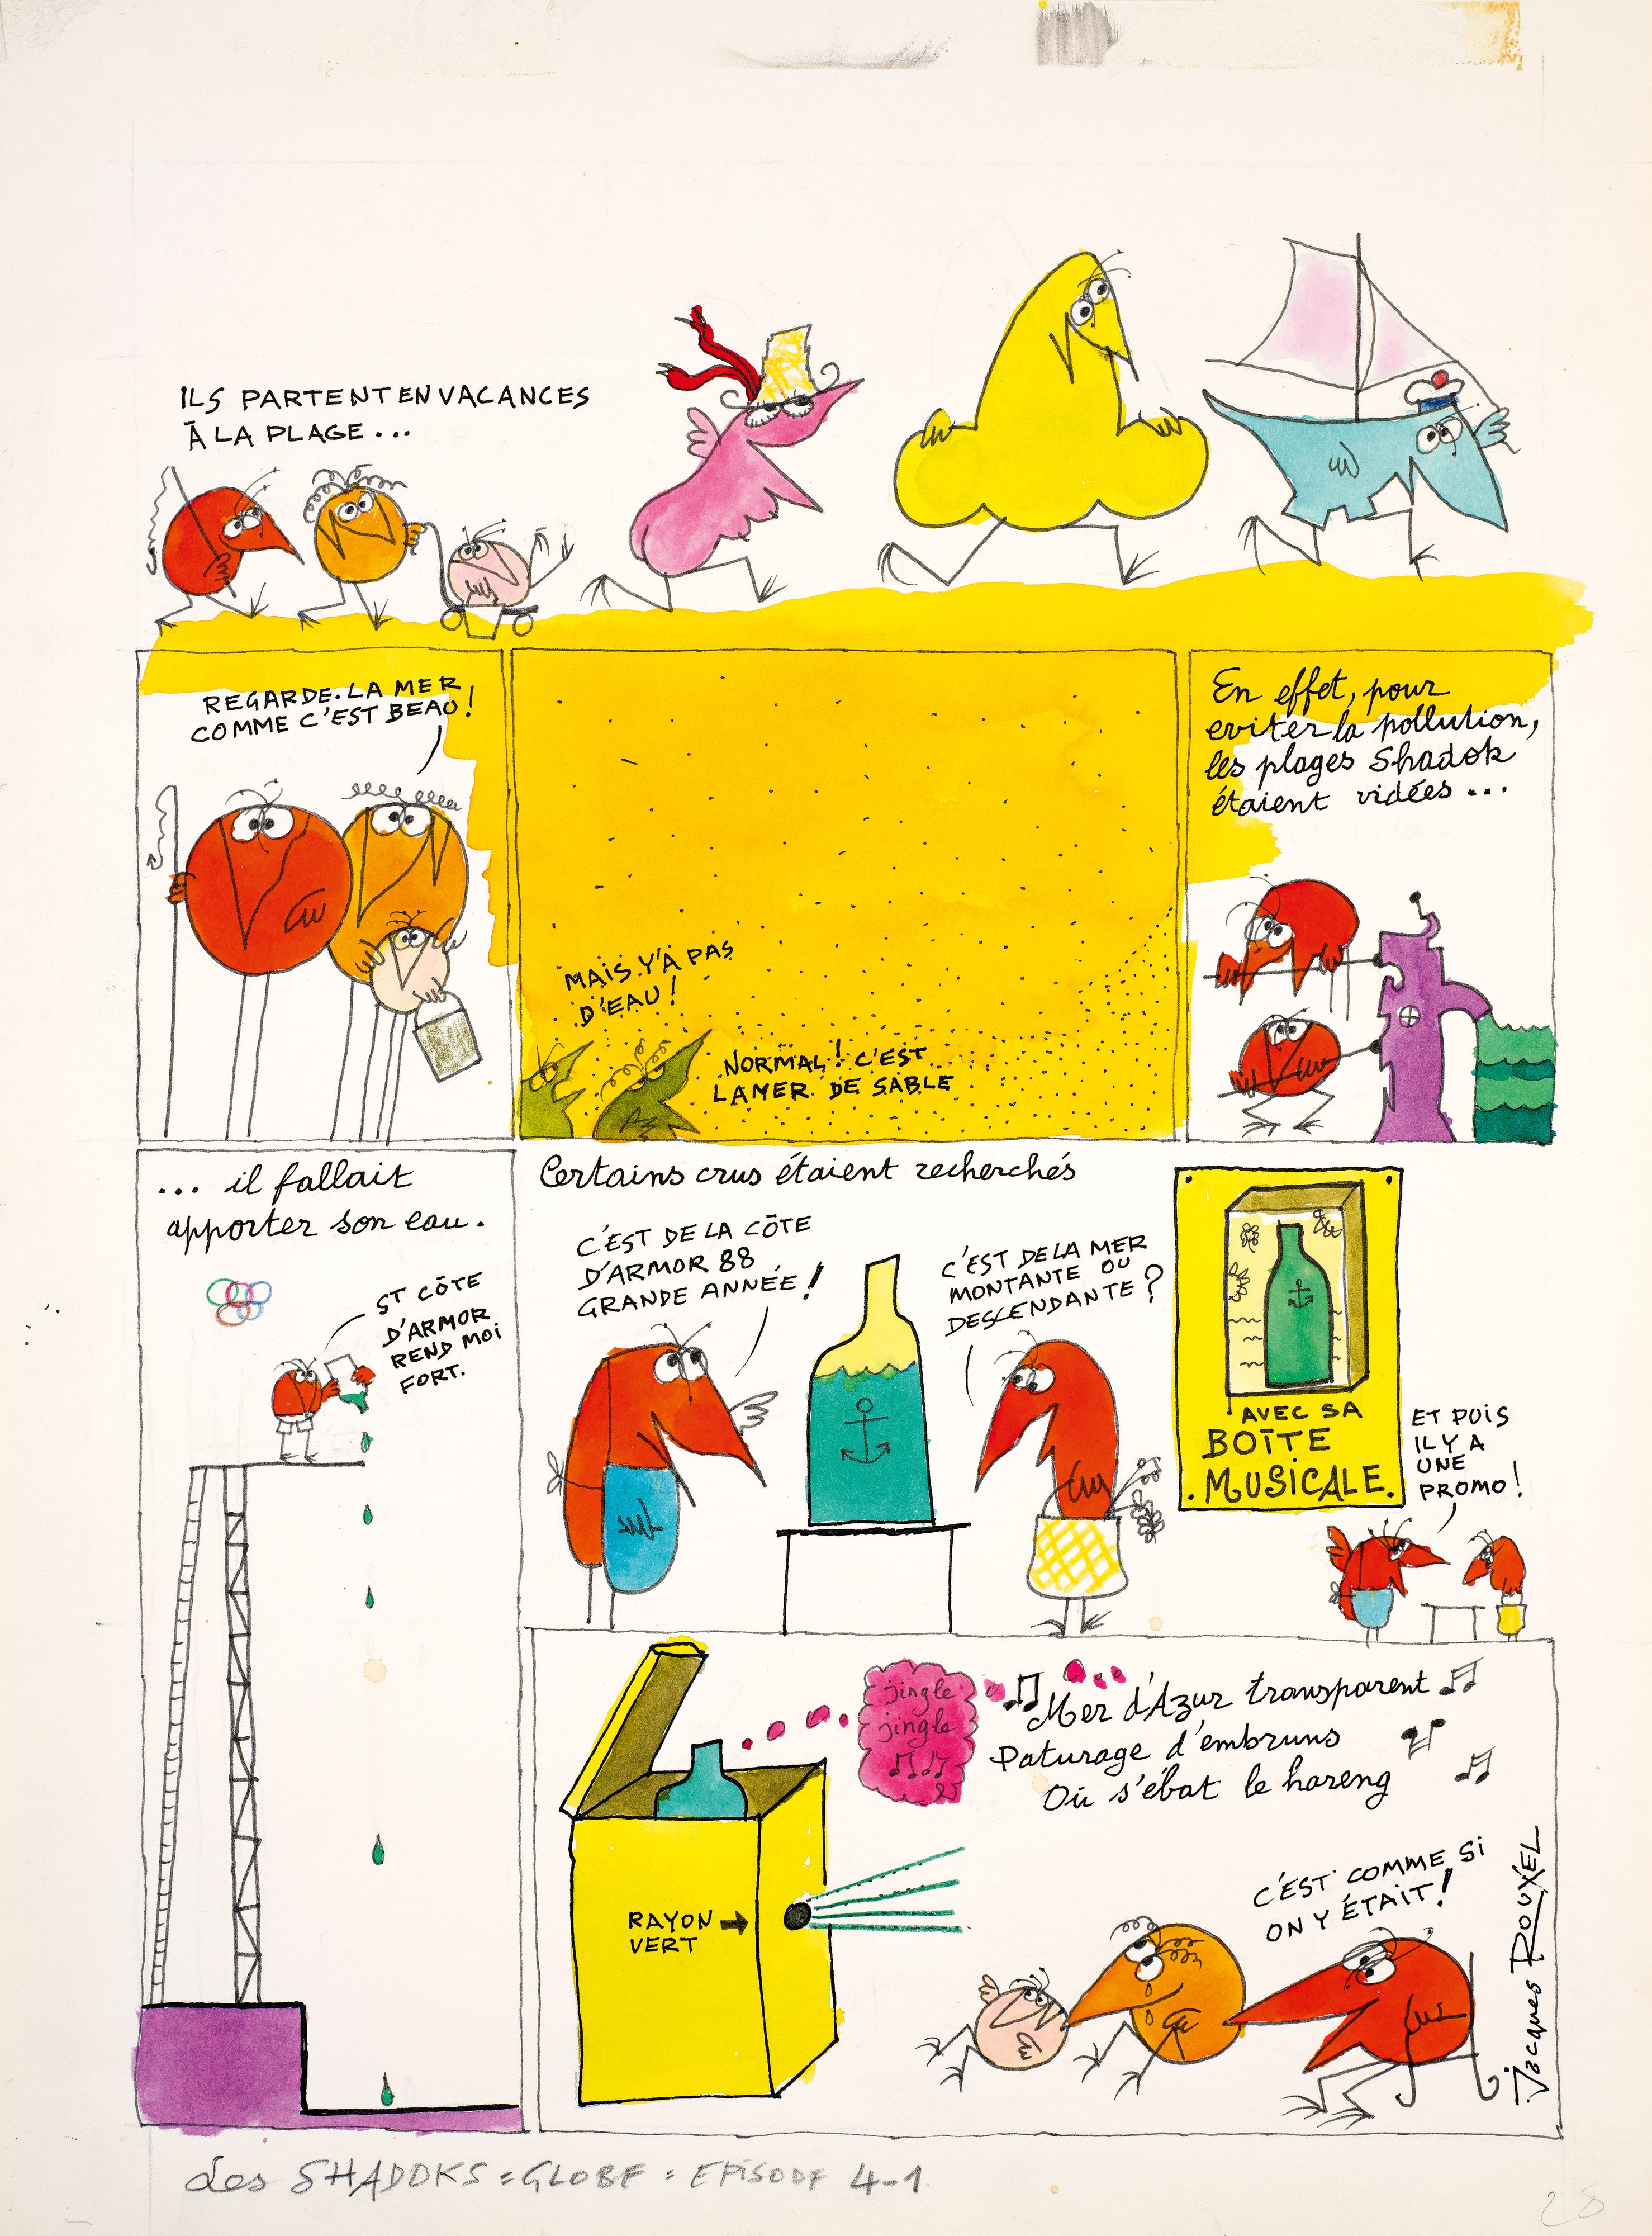 ILS PARTENT EN VACANCES
À LA PLAGE...
REGARDE. LA MER
COMME C'EST BEAU!
MAIS Y'A PAS
D'EAU!
NORMAL! C'EST
LA MER DE SABLE
En effet, pour
eviter la pollution,
les plages Shadok
étaient vidées...
... il fallait
apporter son eau.
ST CÔTE
D'ARMOR
REND MOI
FORT.
Certains crus étaient recherchés
C'EST DE LA CÔTE
D'ARMOR 88
GRANDE ANNÉE!
C'EST DE LA MER
MONTANTE OU
DESCENDANTE?
AVEC SA
BOÎTE
MUSICALE.
ET PUIS
IL Y A
UNE
PROMO!
jingle
jingle
Mer d'Azur transparent
Paturage d'embruns
Où s'ébat le hareng
RAYON
VERT
C'EST COMME SI
ON Y ÉTAIT!
Jacques ROUXEL
Les SHADOKS = GLOBE = EPISODE 4-1
28